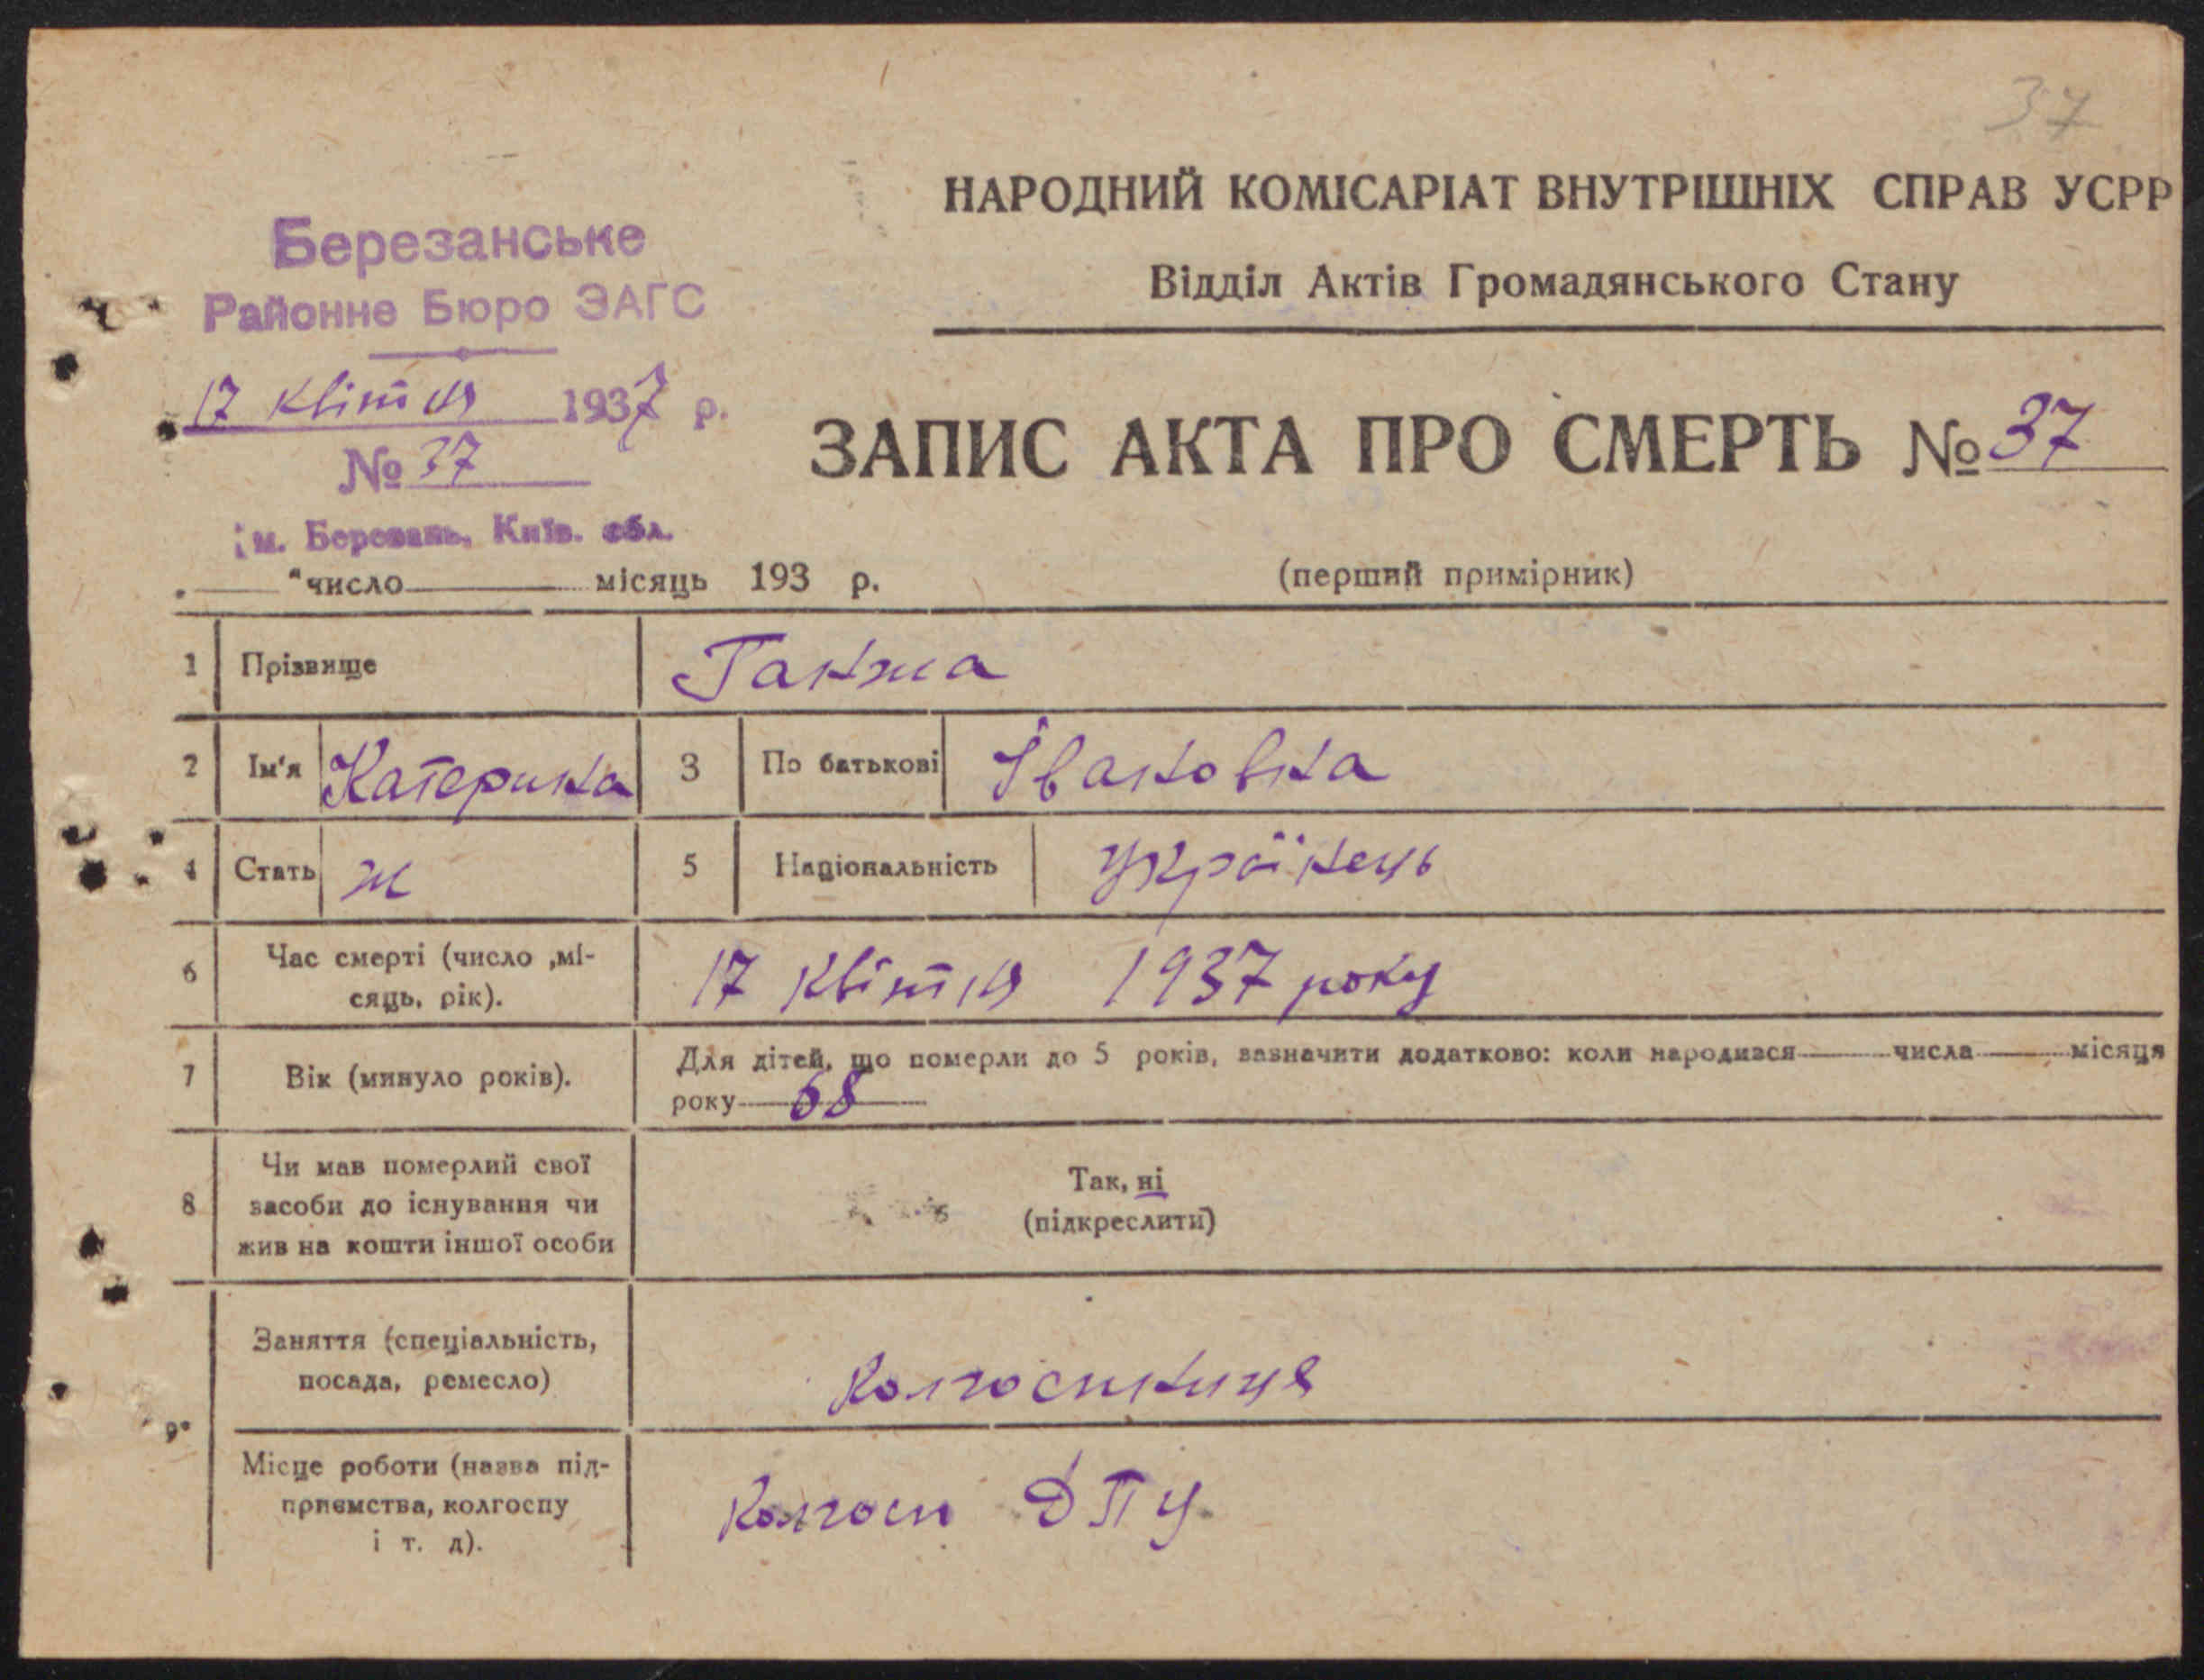 37
НАРОДНИЙ КОМІСАРІАТ ВНУТРІШНІХ СПРАВ УСРР
Відділ Актів Громадянського Стану
Березанське
Районне Бюро ЗАГС
17 квітня 1937 р.
№ 37
м. Березань, Київ. обл.
ЗАПИС АКТА ПРО СМЕРТЬ № 37
"число місяць 193 р.
(перший примірник)
1 Прізвище Ганжа
2 Ім'я Катерина 3 По батькові Івановна
4 Стать ж 5 Національність Українець
6 Час смерті (число ,мі-
сяць, рік).
17 квітня 1937 року
7 Вік (минуло років).
Для дітей, що померли до 5 років, зазначити додатково: коли народився числа місяця
року 68
8 Чи мав померлий свої
засоби до існування чи
жив на кошти іншої особи
Так, ні
(підкреслити)
9. Заняття (спеціальність,
посада, ремесло)
Колгоспниця
Місце роботи (назва під-
приємства, колгоспу
і т. д).
Колгосп ДПУ